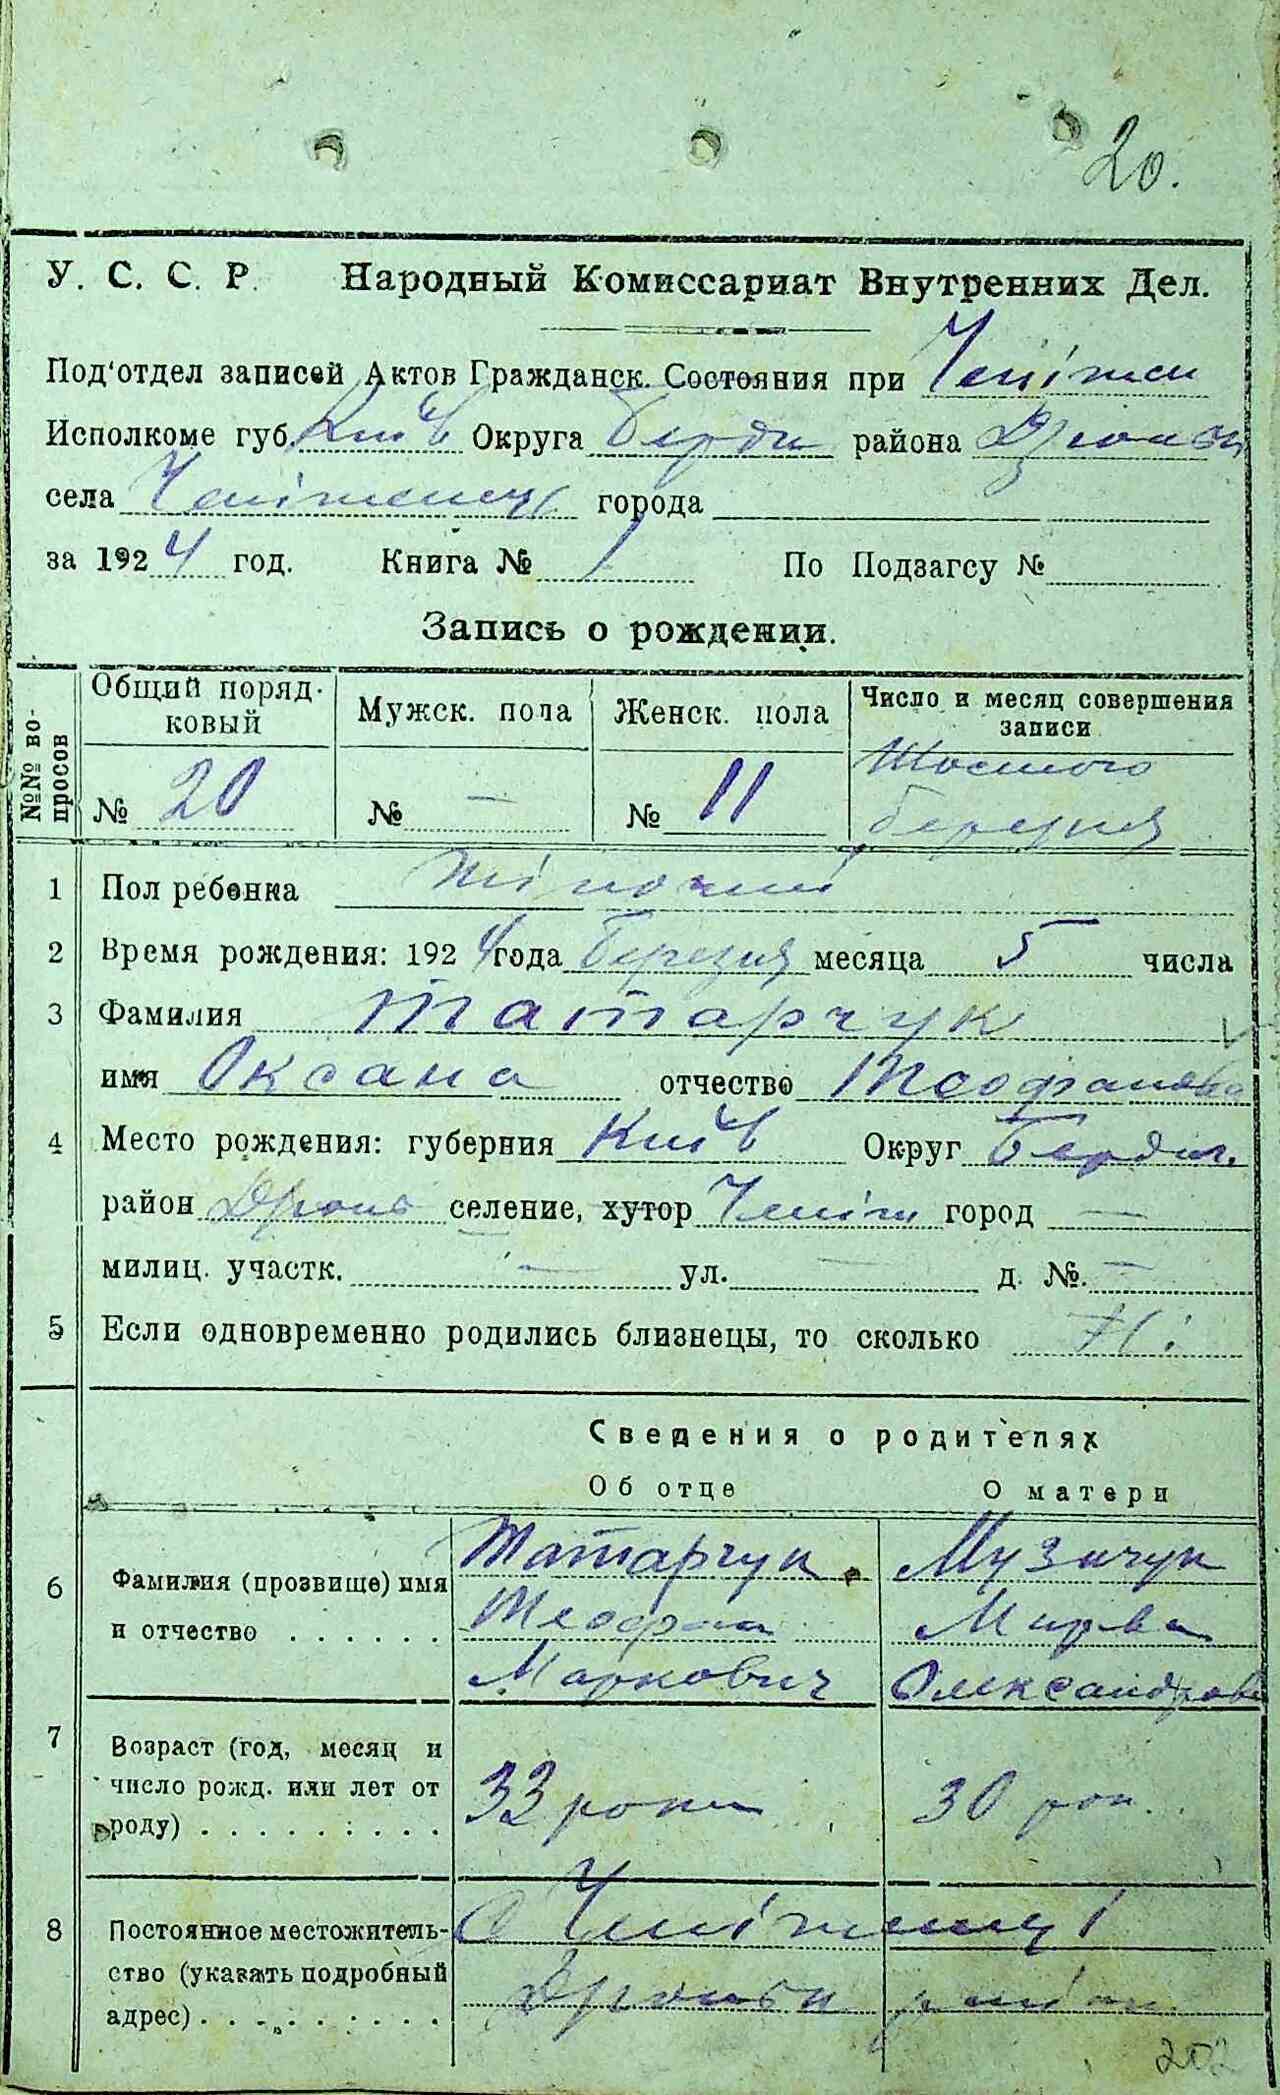 20.
У. С. С. Р. Народный Комиссариат Внутренних Дел.
Под'отдел записей Актов Гражданск. Состояния при
Исполкоме губ. Київ Округа Берди района
села города
за 1924 год. Книга № 1 По Подзагсу №
Запись о рождении.
№№ вопросов
Общий порядковый
Мужск. пола
Женск. пола
Число и месяц совершения записи
№ 20
№ —
№ 11
Шостого
березня
1 Пол ребенка жіночий
2 Время рождения: 1924 года березня месяца 5 числа
3 Фамилия Татарчук
имя Оксана отчество Теофанова
4 Место рождения: губерния Київ Округ Бердич.
район селение, хутор город —
милиц. участк. — ул. — д. №. —
5 Если одновременно родились близнецы, то сколько
Сведения о родителях
Об отце О матери
6 Фамилия (прозвище) имя и отчество . . . . . .
Татарчук
Теофан
Маркович
Музичук
Олександров
7 Возраст (год, месяц и число рожд. или лет от роду) . . . . . . . . .
33 роки
30 рок.
8 Постоянное местожительство (указать подробный адрес) . . . . . . . . .
район